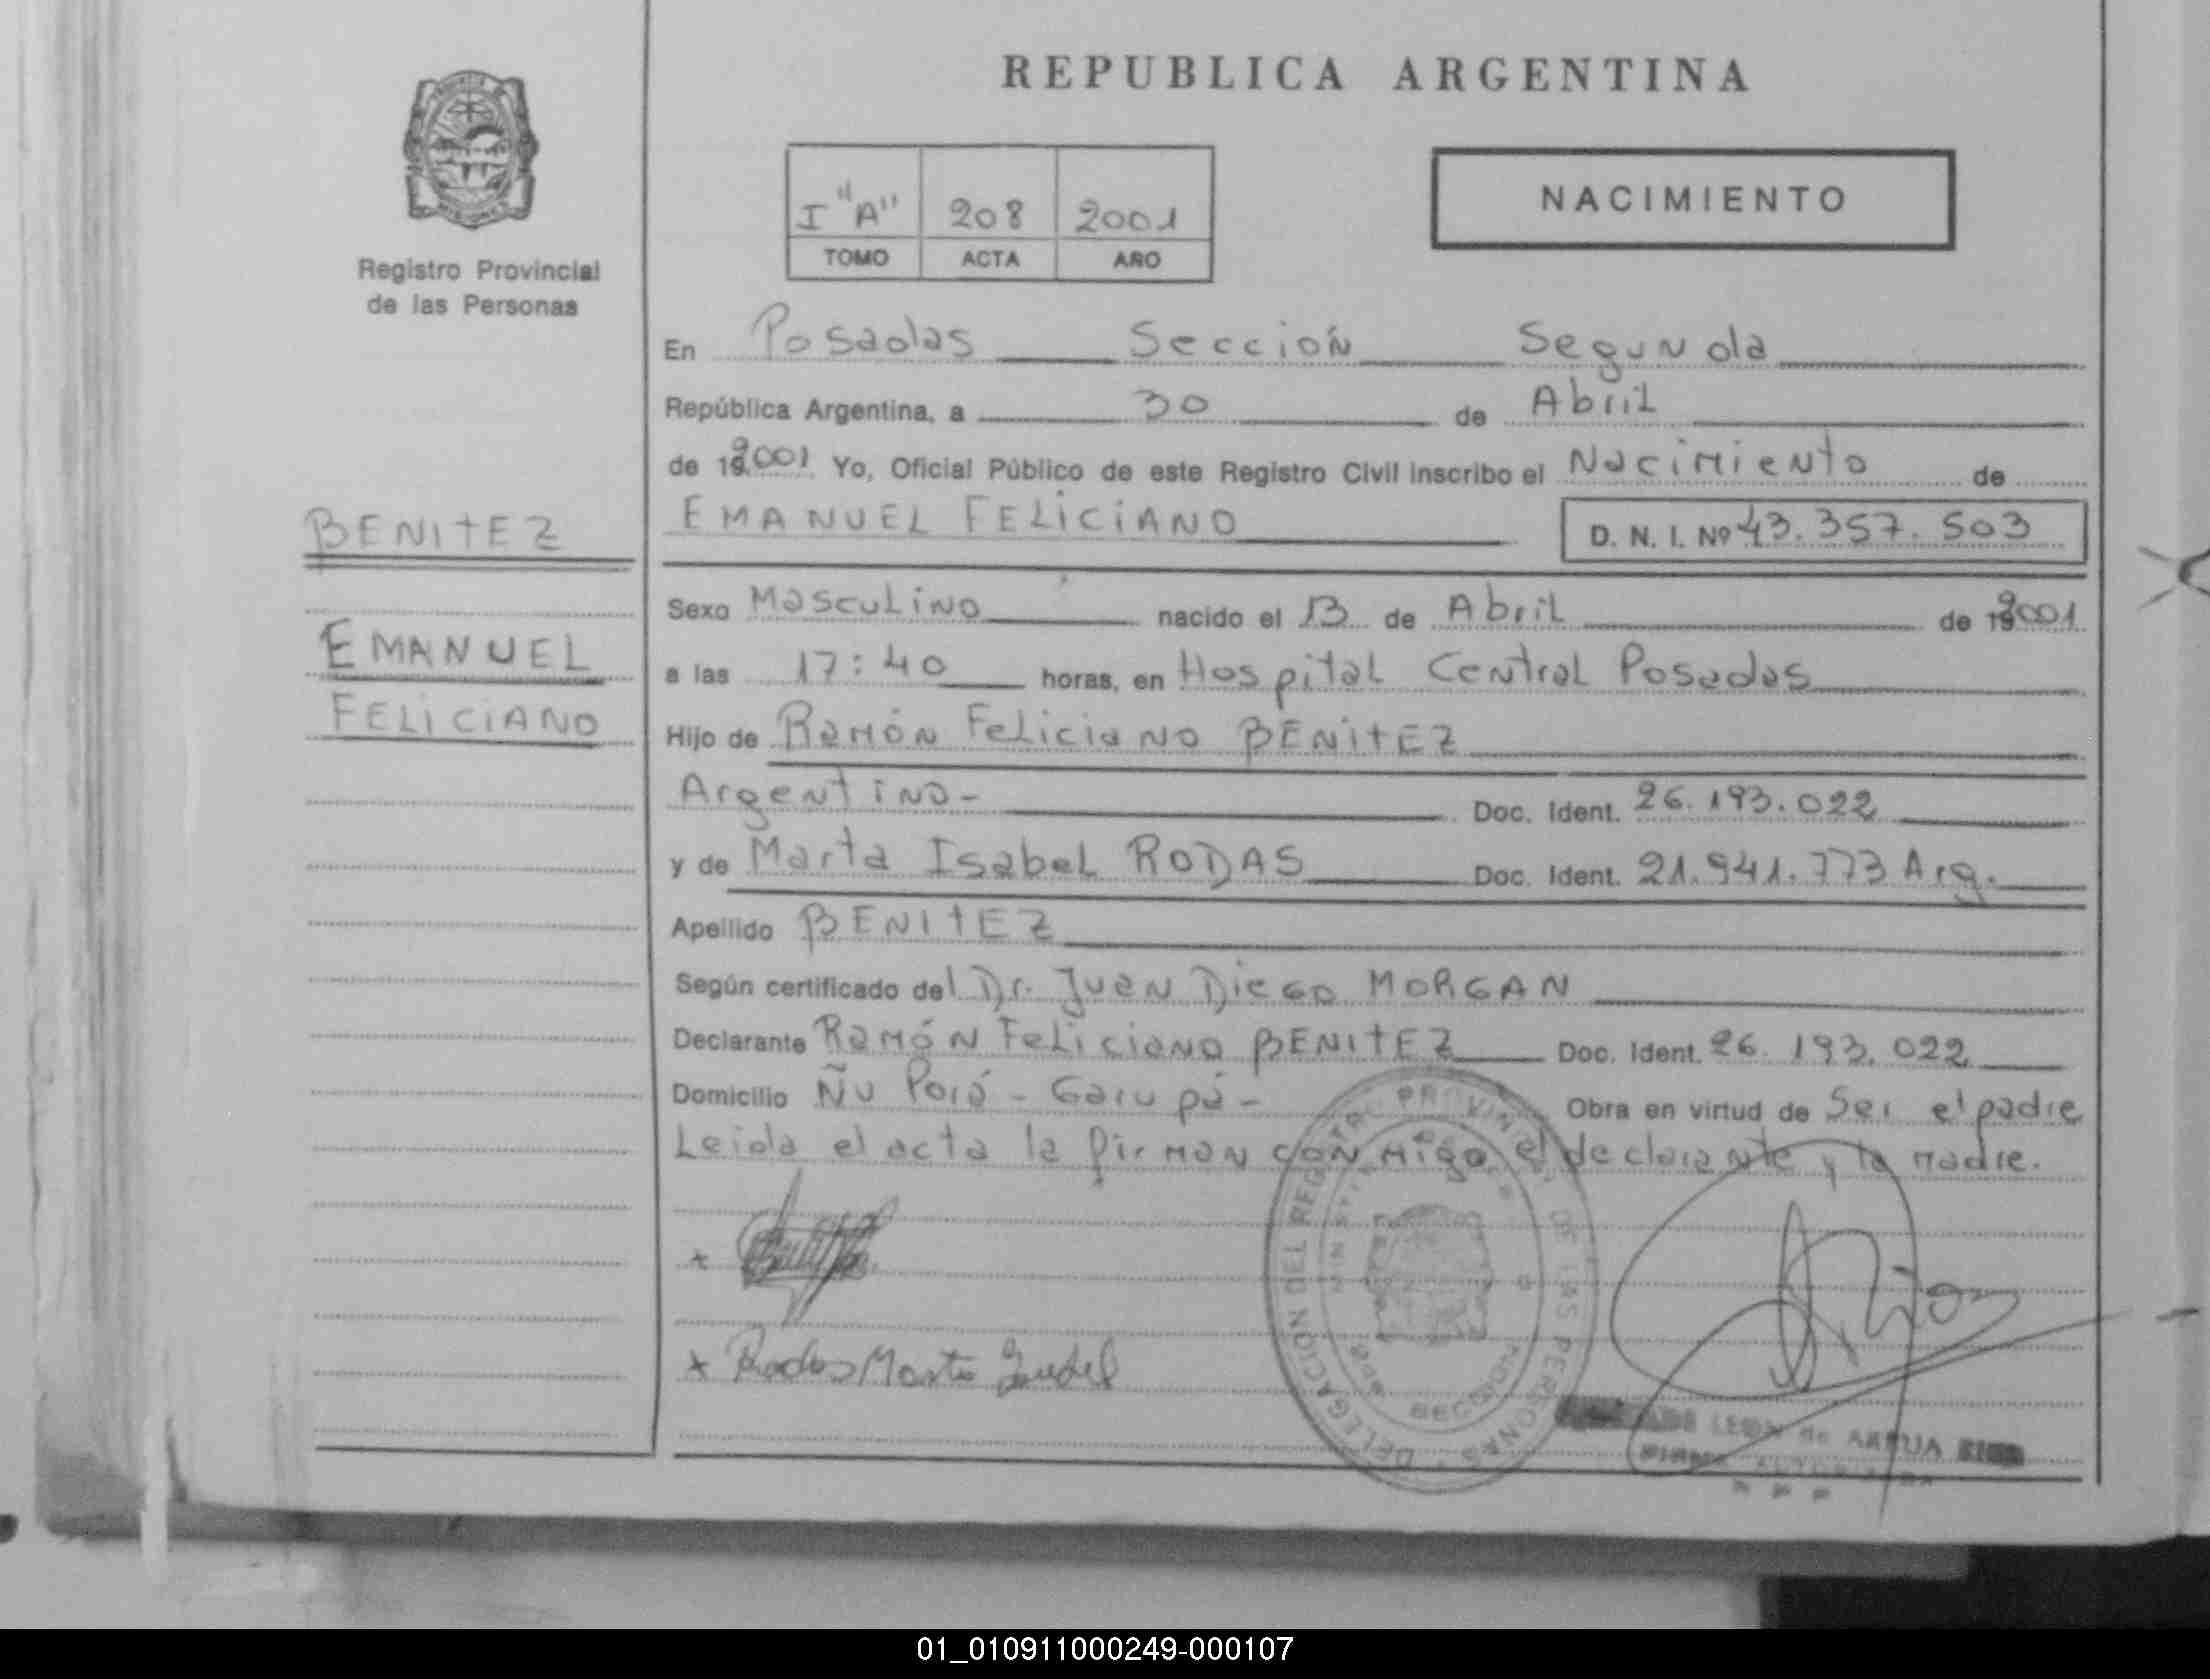 REPUBLICA ARGENTINA
Registro Provincial
de las Personas
I "A" 208 2001
TOMO ACTA AÑO
NACIMIENTO
En Posadas Sección Segunda
República Argentina, a 30 de Abril
de 2001 Yo, Oficial Público de este Registro Civil inscribo el Nacimiento de
EMANUEL FELICIANO D. N. I. Nº 43.357.503
BENITEZ
EMANUEL
FELICIANO
Sexo Masculino nacido el 13 de Abril de 2001
a las 17:40 horas, en Hospital Central Posadas
Hijo de Ramón Feliciano BENITEZ
Argentino- Doc. Ident. 26.193.022
y de Marta Isabel RODAS Doc. Ident. 21.941.773 Arg.
Apellido BENITEZ
Según certificado del Dr. Juan Diego MORGAN
Declarante Ramón Feliciano BENITEZ Doc. Ident. 26.193.022
Domicilio Ñu Porá - Garupá - Obra en virtud de Ser el padre
Leida el acta la firman conmigo el declarante y la madre.
Rodas Marta Isabel
DELEGACION DEL REGISTRO PROVINCIAL DE LAS PERSONAS
LEON de
01_010911000249-000107